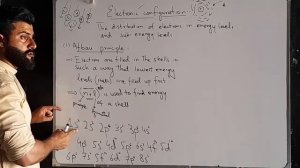 Electronic configuration:
The distribution of electrons in energy levels
and sub energy levels
(1) Aufbau principle:-
⇒ Electrons are filled in the shells in
such a way that lowest energy
levels are filled up first
⇒ (n+l) is used to find energy
of a shell
1s 2s 2p 3s 3p 4s
4p 5s 4d 5p 6s 4f 5d
6p 7s 5f 6d 7p 8s